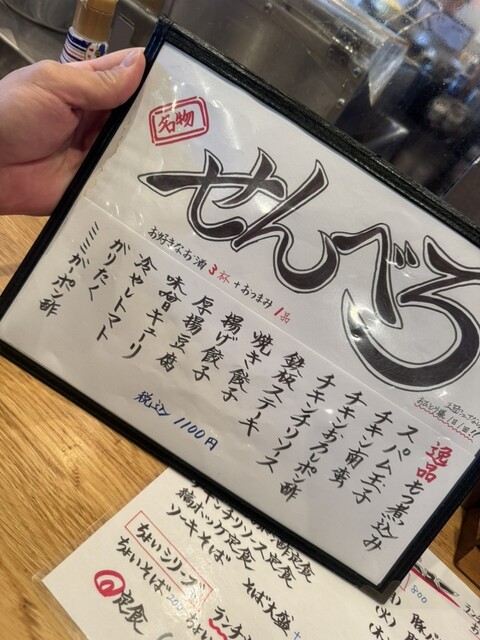 名物
せんべろ
お好きなお酒3杯+おつまみ1品
逸品
もつ煮込み
スパム玉子
チキン南蛮
チキンおろしポン酢
チキンチリソース
鉄板ステーキ
焼き餃子
揚げ餃子
厚揚豆腐
味噌キューリ
冷やしトマト
がりたく
ミミガーポン酢
税込 1100円
チキンチリソース定食
ソーキそば
ちょいシリーズ
ちょいそば
定食
そば大盛
ランチ
800
豚